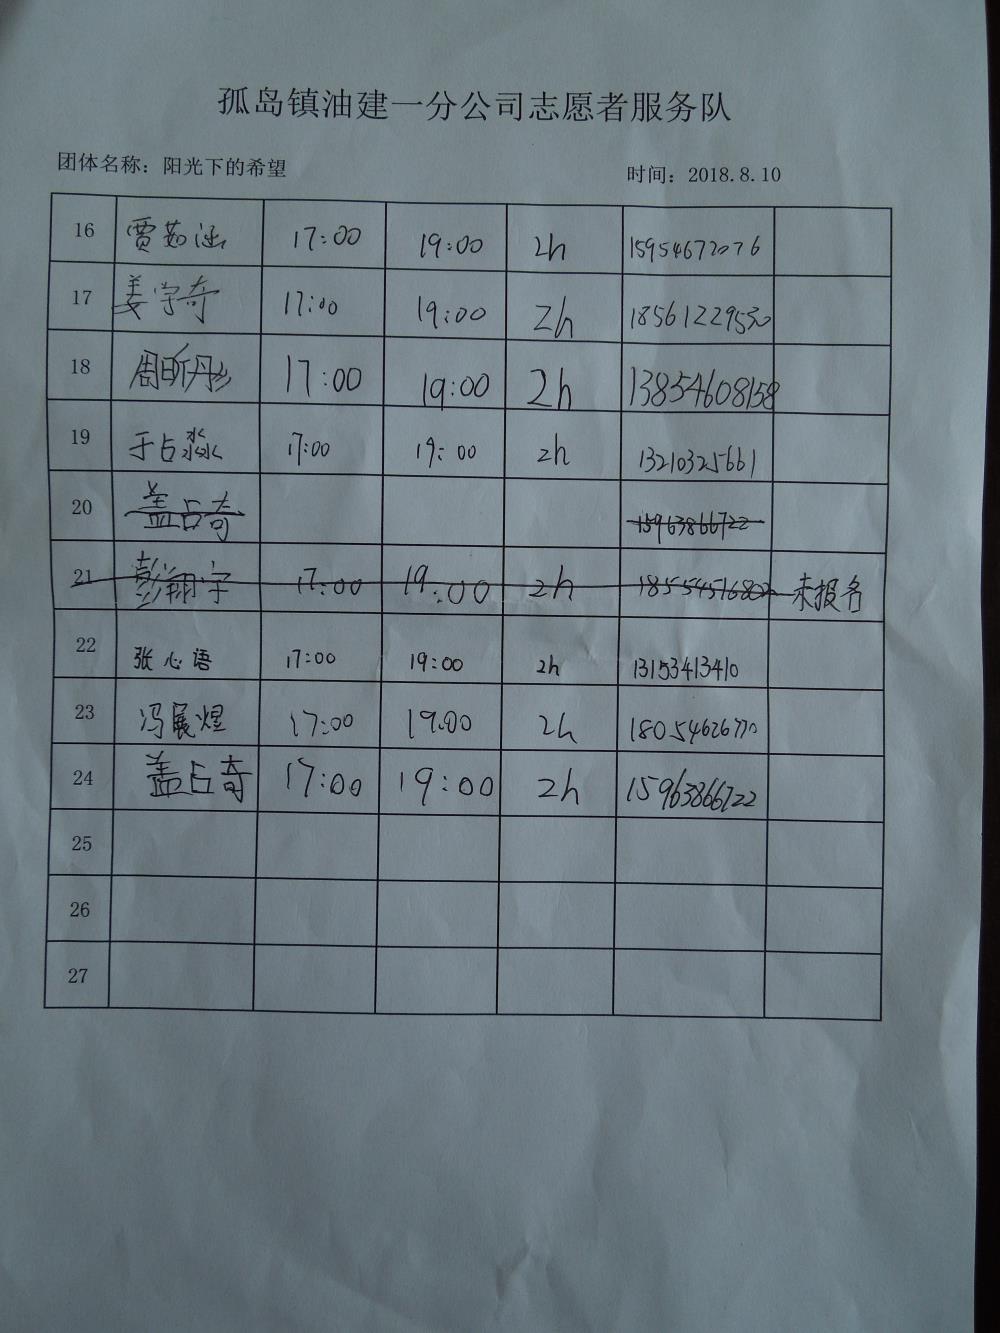 孤岛镇油建一分公司志愿者服务队
团体名称：阳光下的希望 时间：2018.8.10
16 贾茹涵 17:00 19:00 2h 15954672076
17 姜宇奇 17:00 19:00 2h 18561229530
18 周昕彤 17:00 19:00 2h 13854608158
19 于占淼 17:00 19:00 2h 13210325661
20 盖占奇 15963866722
21 彭翔宇 17:00 19:00 2h 未报名
22 张心语 17:00 19:00 2h 13153413410
23 冯展煜 17:00 19:00 2h 18054626770
24 盖占奇 17:00 19:00 2h 15963866722
25
26
27